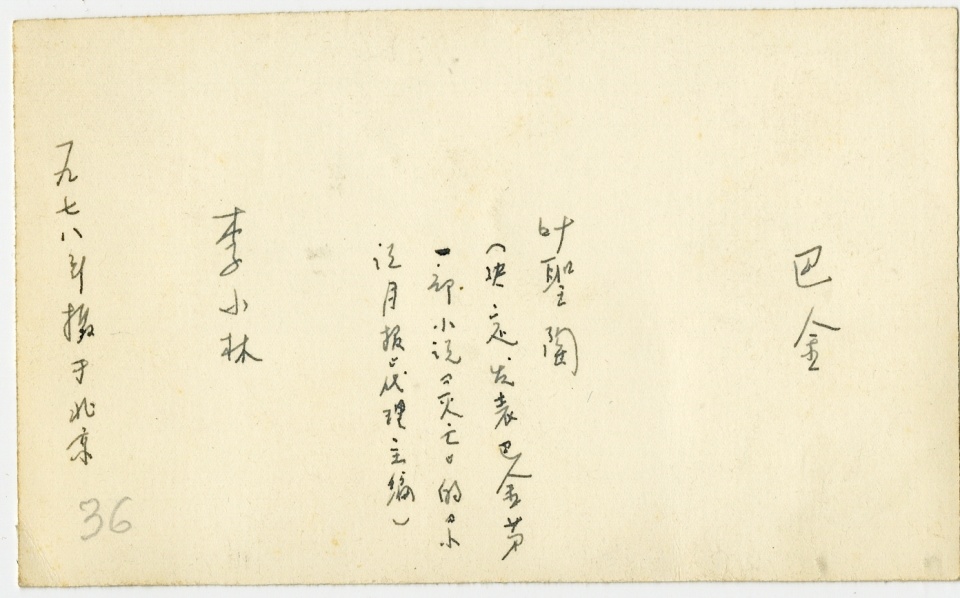 巴金
叶聖陶
（决定发表巴金第
一部小说《灭亡》的《小
说月报》代理主编）
李小林
一九七八年摄于北京
36